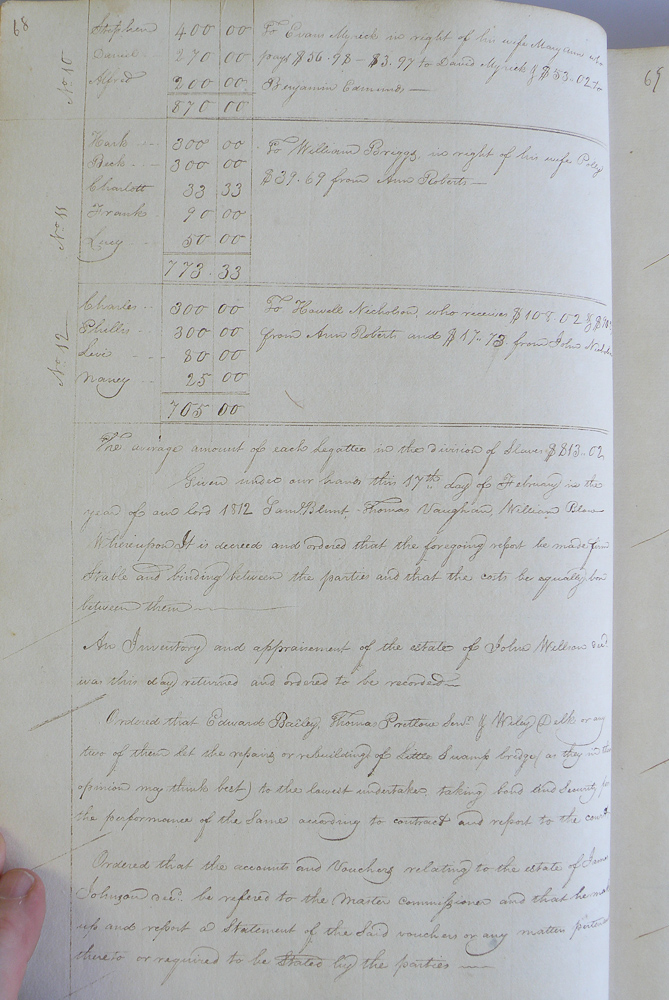 68
Stephen 400 00 To Evan Myrick in right of his wife Mary Ann who
Daniel 270 00 pays $56.98 - $3.97 to David Myrick & $53-02 to
Alfred 200 00 Benjamin Edmunds —
870 00
No. 10
Hark 300 00 To William Briggs, in right of his wife Polly
Beck 300 00 $39.69 from Ann Roberts —
Charlott 33 33
Frank 90 00
Lucy 50 00
773.33
No. 11
Charles 300 00 To Howell Nicholson, who receives $108-02
Phillis 300 00 from Ann Roberts and $17-73 from John
Levi 80 00
Nancy 25 00
705 00
No. 12
The average amount of each Legattee in the division of Slaves $813-02
Given under our hands this 17th day of February in the
year of our lord 1812 Saml. Blunt, Thomas Vaughan, William Blow
Whereupon It is decreed and ordered that the foregoing report be made firm
stable and binding between the parties and that the costs be equally
between them —
An Inventory and appraisement of the estate of John Willson decd.
was this day returned and ordered to be recorded —
Ordered that Edward Bailey, Thomas Pretlow Senr. & Wiley Delk or any
two of them let the repairs or rebuilding of little Swamp bridge (as they in
opinion may think best) to the lowest undertaker, taking bond and Security for
the performance of the Same according to contract and report to the court
Ordered that the accounts and Vouchers relating to the estate of
Johnson decd. be refered to the Master commissioner and that he
up and report a Statement of the Said vouchers or any matter
thereto or required to be Stated by the parties —
69